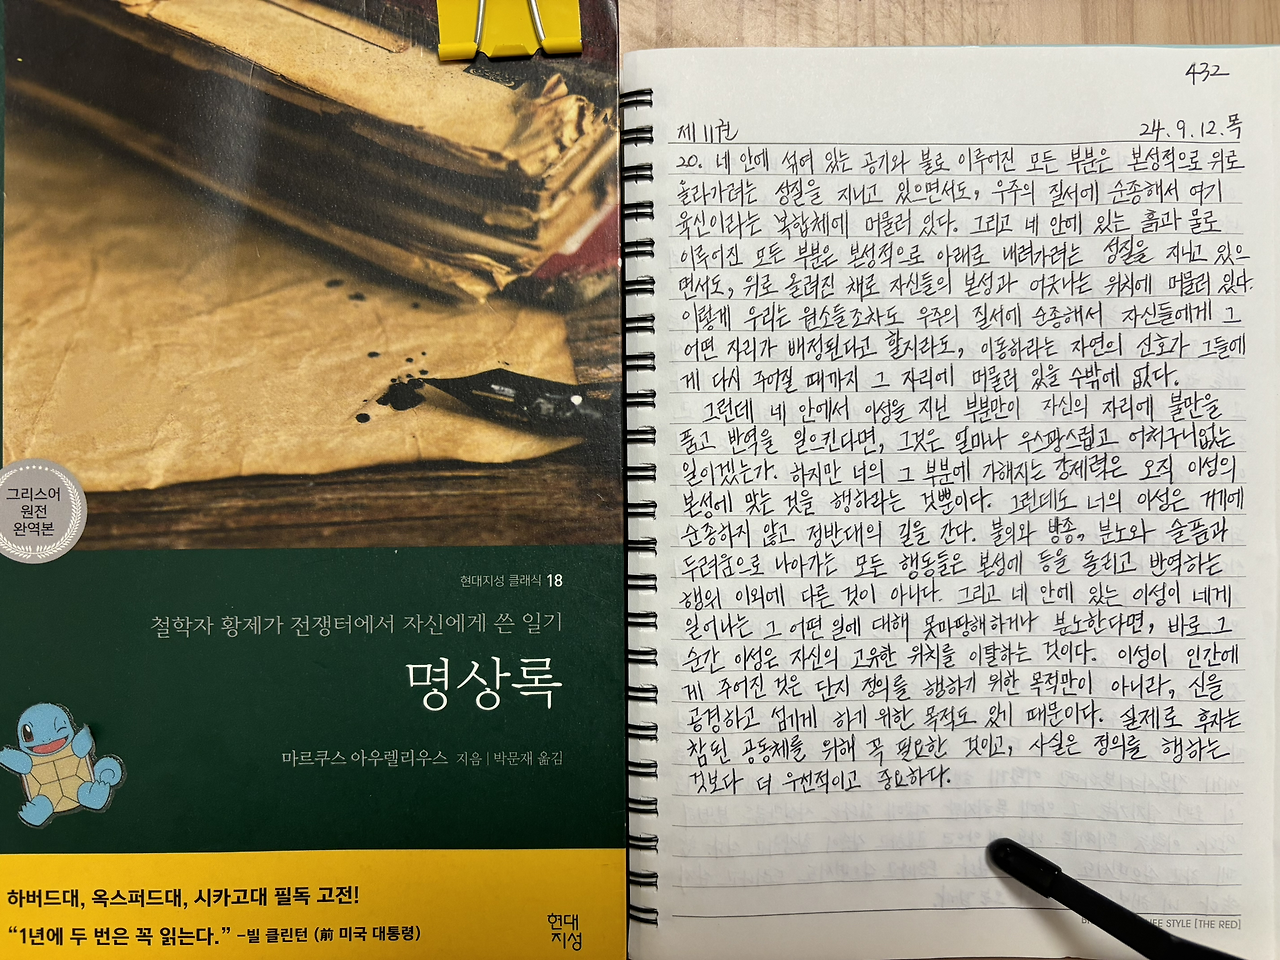 그리스어
원전
완역본
현대지성 클래식 18
철학자 황제가 전쟁터에서 자신에게 쓴 일기
명상록
마르쿠스 아우렐리우스 지음 | 박문재 옮김
하버드대, 옥스퍼드대, 시카고대 필독 고전!
“1년에 두 번은 꼭 읽는다.” -빌 클린턴 (前 미국 대통령)
현대
지성
432
제 11권
24. 9. 12. 목
20. 네 안에 섞여 있는 공기와 불로 이루어진 모든 부분은 본성적으로 위로
올라가려는 성질을 지니고 있으면서도, 우주의 질서에 순종해서 여기
육신이라는 복합체에 머물러 있다. 그리고 네 안에 있는 흙과 물로
이루어진 모든 부분은 본성적으로 아래로 내려가려는 성질을 지니고 있으
면서도, 위로 올려진 채로 자신들의 본성과 어긋나는 위치에 머물러 있다.
이렇게 우리는 원소들조차도 우주의 질서에 순종해서 자신들에게 그
어떤 자리가 배정된다고 할지라도, 이동하라는 자연의 신호가 그들에
게 다시 주어질 때까지 그 자리에 머물러 있을 수밖에 없다.
그런데 네 안에서 이성을 지닌 부분만이 자신의 자리에 불만을
품고 반역을 일으킨다면, 그것은 얼마나 우스꽝스럽고 어처구니없는
일이겠는가. 하지만 너의 그 부분에 가해지는 강제력은 오직 이성의
본성에 맞는 것을 행하라는 것뿐이다. 그런데도 너의 이성은 거기에
순종하지 않고 정반대의 길을 간다. 불의와 방종, 분노와 슬픔과
두려움으로 나아가는 모든 행동들은 본성에 등을 돌리고 반역하는
행위 이외에 다른 것이 아니다. 그리고 네 안에 있는 이성이 네게
일어나는 그 어떤 일에 대해 못마땅해하거나 분노한다면, 바로 그
순간 이성은 자신의 고유한 위치를 이탈하는 것이다. 이성이 인간에
게 주어진 것은 단지 정의를 행하기 위한 목적만이 아니라, 신을
공경하고 섬기게 하기 위한 목적도 있기 때문이다. 실제로 후자는
참된 공동체를 위해 꼭 필요한 것이고, 사실은 정의를 행하는
것보다 더 우선적이고 중요하다.
STYLE [THE RED]